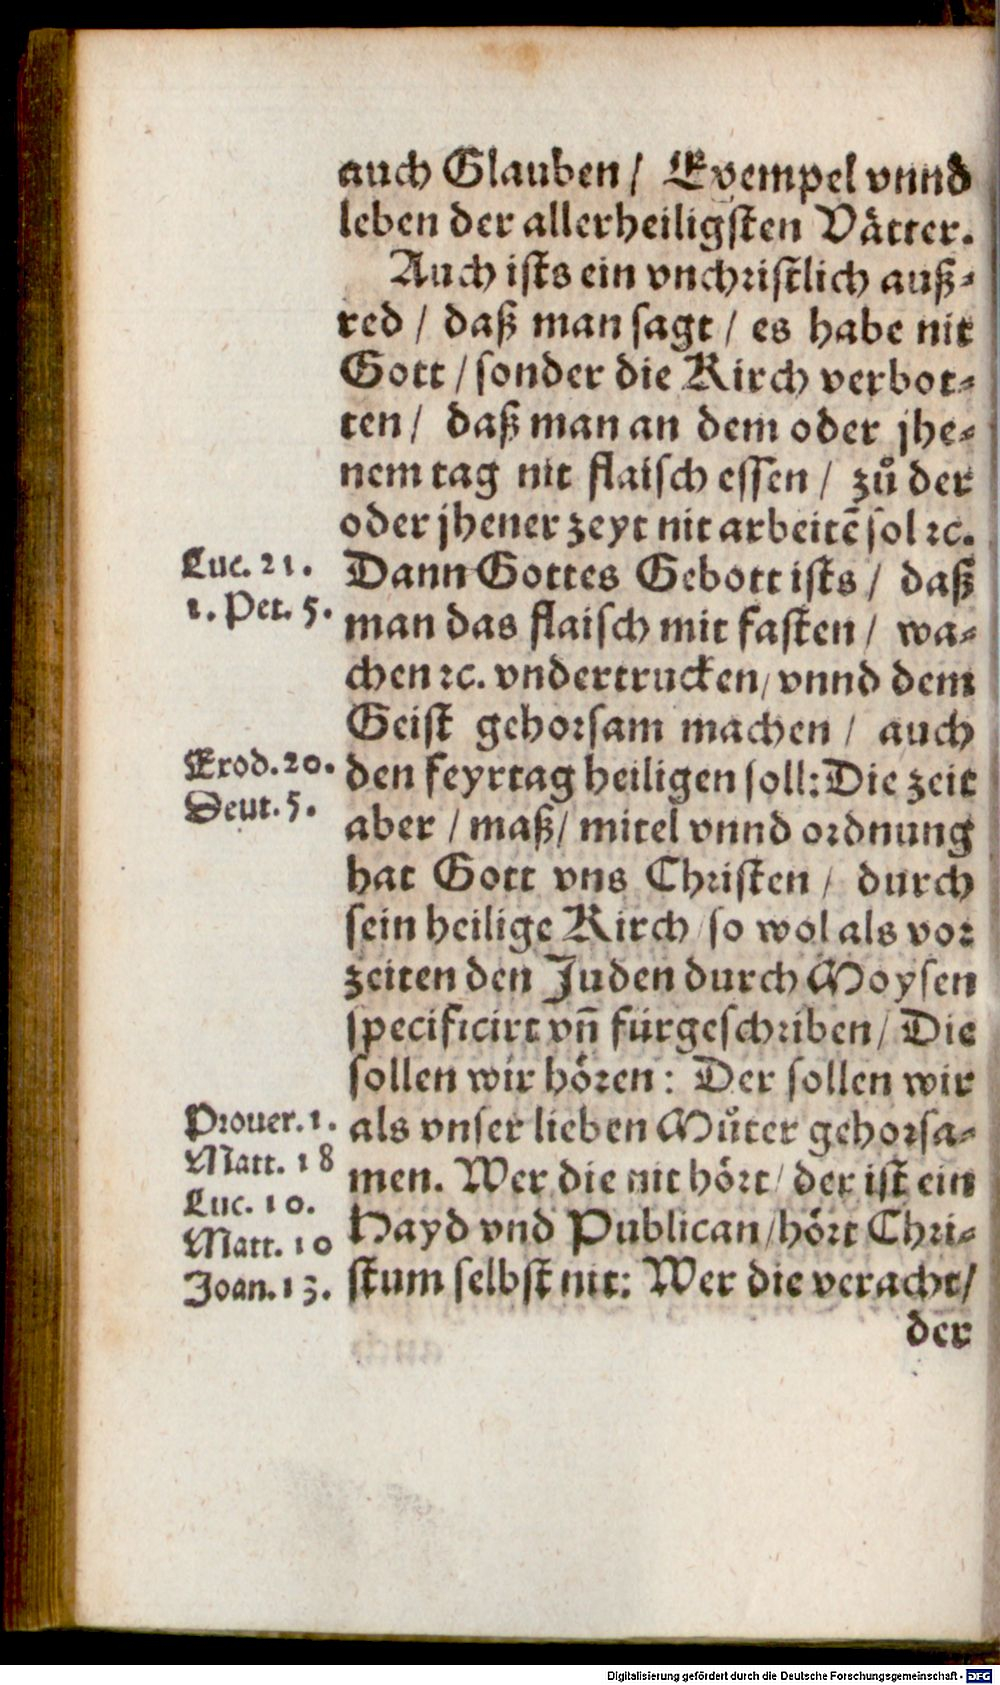 auch Glauben / Exempel vnnd
leben der allerheiligsten Vätter.
Auch ists ein vnchristlich auß-
red / daß man sagt / es habe nit
Gott / sonder die Kirch verbot-
ten / daß man an dem oder jhe-
nem tag nit flaisch essen / zů der
oder jhener zeyt nit arbeitē sol ꝛc.
Luc. 21.
1. Pet. 5.
Dann Gottes Gebott ists / daß
man das flaisch mit fasten / wa-
chen ꝛc. vndertrucken / vnnd dem
Geist gehorsam machen / auch
Exod. 20.
Deut. 5.
den feyrtag heiligen soll: Die zeit
aber / maß / mitel vnnd ordnung
hat Gott vns Christen / durch
sein heilige Kirch / so wol als vor
zeiten den Juden durch Moysen
specificirt vn̄ fürgeschriben / Die
sollen wir hören : Der sollen wir
Prouer. 1.
Matt. 18
Luc. 10.
Matt. 10
Joan. 13.
als vnser lieben Můter gehorsa-
men. Wer die nit hört / der ist ein
Hayd vnd Publican / hört Chri-
stum selbst nit: Wer die veracht /
der
Digitalisierung gefördert durch die Deutsche Forschungsgemeinschaft - DFG